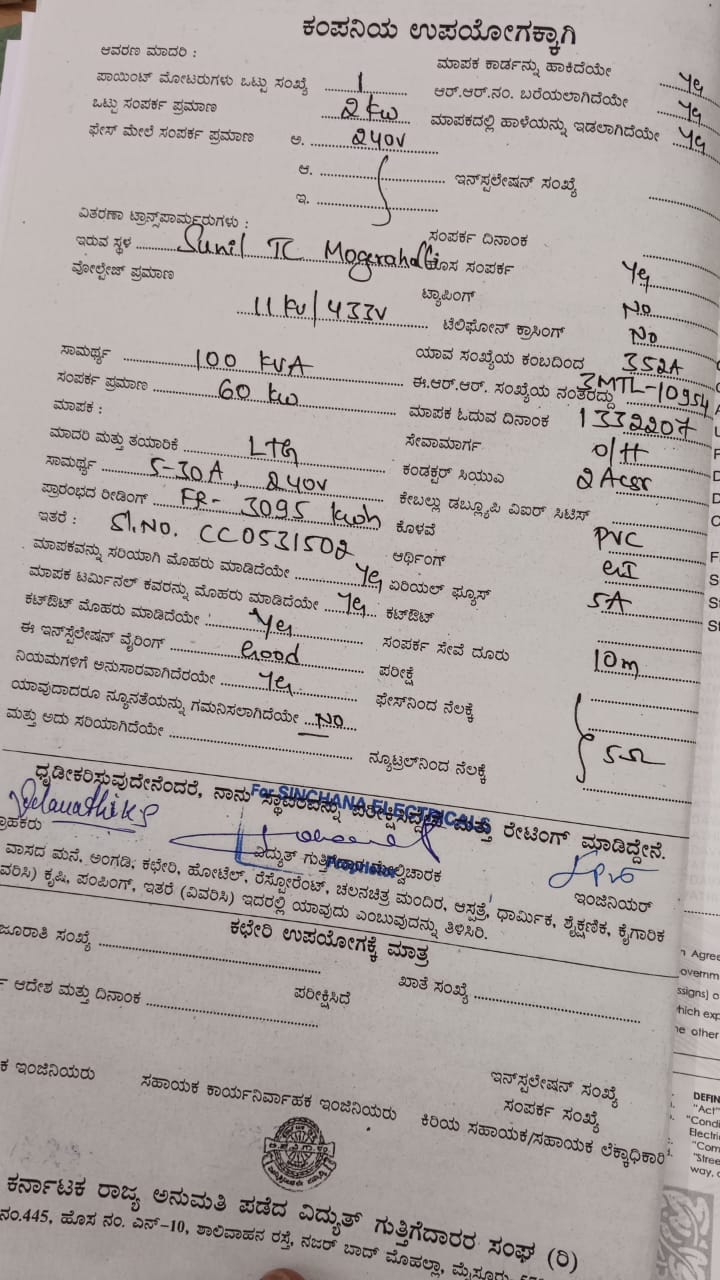 ಕಂಪನಿಯ ಉಪಯೋಗಕ್ಕಾಗಿ
ಆವರಣ ಮಾದರಿ :
ಮಾಪಕ ಕಾರ್ಡನ್ನು ಹಾಕಿದೆಯೇ Yes
ಪಾಯಿಂಟ್ ಮೋಟರುಗಳು ಒಟ್ಟು ಸಂಖ್ಯೆ 1
ಆರ್.ಆರ್.ನಂ. ಬರೆಯಲಾಗಿದೆಯೇ Yes
ಒಟ್ಟು ಸಂಪರ್ಕ ಪ್ರಮಾಣ 2 kw
ಮಾಪಕದಲ್ಲಿ ಹಾಳೆಯನ್ನು ಇಡಲಾಗಿದೆಯೇ Yes
ಫೇಸ್ ಮೇಲೆ ಸಂಪರ್ಕ ಪ್ರಮಾಣ ಅ. 240V
ಆ.
ಇನ್‌ಸ್ಟಲೇಷನ್ ಸಂಖ್ಯೆ
ಇ.
ವಿತರಣಾ ಟ್ರಾನ್ಸ್‌ಪಾರ್ಮರುಗಳು :
ಸಂಪರ್ಕ ದಿನಾಂಕ
ಇರುವ ಸ್ಥಳ Sunil TC Mogerahalli
ಹೊಸ ಸಂಪರ್ಕ Yes
ವೋಲ್ಟೇಜ್ ಪ್ರಮಾಣ 11 KV/433V
ಟ್ಯಾಪಿಂಗ್ No
ಟೆಲಿಫೋನ್ ಕ್ರಾಸಿಂಗ್ No
ಸಾಮರ್ಥ್ಯ 100 KVA
ಯಾವ ಸಂಖ್ಯೆಯ ಕಂಬದಿಂದ 352A
ಸಂಪರ್ಕ ಪ್ರಮಾಣ 60 kw
ಈ.ಆರ್.ಆರ್. ಸಂಖ್ಯೆಯ ನಂತರದ್ದು 3MTL-10954
ಮಾಪಕ :
ಮಾಪಕ ಓದುವ ದಿನಾಂಕ 1332207
ಮಾದರಿ ಮತ್ತು ತಯಾರಿಕೆ LTG
ಸೇವಾಮಾರ್ಗ O/H
ಸಾಮರ್ಥ್ಯ 5-30A, 240V
ಕಂಡಕ್ಟರ್ ಸಿಯುಎ 2 Acsr
ಪ್ರಾರಂಭದ ರೀಡಿಂಗ್ FR- 3095 kwh
ಕೇಬಲ್ಲು ಡಬ್ಲ್ಯೂಪಿ ವಿಐರ್ ಸಿಟಿಸ್
ಇತರೆ : Sl.NO. CC0531502
ಕೊಳವೆ PVC
ಮಾಪಕವನ್ನು ಸರಿಯಾಗಿ ಮೊಹರು ಮಾಡಿದೆಯೇ Yes
ಆರ್ಥಿಂಗ್ GI
ಮಾಪಕ ಟರ್ಮಿನಲ್ ಕವರನ್ನು ಮೊಹರು ಮಾಡಿದೆಯೇ Yes
ಏರಿಯಲ್ ಫ್ಯೂಸ್ 5A
ಕಟ್‌ಔಟ್ ಮೊಹರು ಮಾಡಿದೆಯೇ Yes
ಕಟ್‌ಔಟ್
ಈ ಇನ್‌ಸ್ಟಲೇಷನ್ ವೈರಿಂಗ್ Good
ಸಂಪರ್ಕ ಸೇವೆ ದೂರು 10m
ನಿಯಮಗಳಿಗೆ ಅನುಸಾರವಾಗಿದೆರಯೇ Yes
ಪರೀಕ್ಷೆ
ಯಾವುದಾದರೂ ನ್ಯೂನತೆಯನ್ನು ಗಮನಿಸಲಾಗಿದೆಯೇ NO
ಫೇಸ್‌ನಿಂದ ನೆಲಕ್ಕೆ
5Ω
ಮತ್ತು ಅದು ಸರಿಯಾಗಿದೆಯೇ
ನ್ಯೂಟ್ರಲ್‌ನಿಂದ ನೆಲಕ್ಕೆ
ಧೃಡೀಕರಿಸುವುದೇನೆಂದರೆ, ನಾನು ಸ್ಥಾವರವನ್ನು ಪರೀಕ್ಷಿಸಿದ್ದೇನೆ ಮತ್ತು ರೇಟಿಂಗ್ ಮಾಡಿದ್ದೇನೆ.
For SINCHANA ELECTRICALS
ಗ್ರಾಹಕರು
ವಿದ್ಯುತ್ ಗುತ್ತಿಗೆದಾರ ಮೇಲ್ವಿಚಾರಕ
ಇಂಜಿನಿಯರ್
ವಾಸದ ಮನೆ, ಅಂಗಡಿ, ಕಛೇರಿ, ಹೋಟೆಲ್, ರೆಸ್ಟೋರೆಂಟ್, ಚಲನಚಿತ್ರ ಮಂದಿರ, ಆಸ್ಪತ್ರೆ, ಧಾರ್ಮಿಕ, ಶೈಕ್ಷಣಿಕ, ಕೈಗಾರಿಕ
ವರಿಸಿ) ಕೃಷಿ, ಪಂಪಿಂಗ್, ಇತರೆ (ವಿವರಿಸಿ) ಇದರಲ್ಲಿ ಯಾವುದು ಎಂಬುವುದನ್ನು ತಿಳಿಸಿರಿ.
ಕಛೇರಿ ಉಪಯೋಗಕ್ಕೆ ಮಾತ್ರ
ಜೂರಾತಿ ಸಂಖ್ಯೆ
ಖಾತೆ ಸಂಖ್ಯೆ
ಆದೇಶ ಮತ್ತು ದಿನಾಂಕ
ಪರೀಕ್ಷಿಸಿದೆ
ಇನ್‌ಸ್ಟಲೇಷನ್ ಸಂಖ್ಯೆ
ಕ ಇಂಜಿನಿಯರು
ಸಹಾಯಕ ಕಾರ್ಯನಿರ್ವಾಹಕ ಇಂಜಿನಿಯರು
ಸಂಪರ್ಕ ಸಂಖ್ಯೆ
ಕಿರಿಯ ಸಹಾಯಕ/ಸಹಾಯಕ ಲೆಕ್ಕಾಧಿಕಾರಿ
ಕರ್ನಾಟಕ ರಾಜ್ಯ ಅನುಮತಿ ಪಡೆದ ವಿದ್ಯುತ್ ಗುತ್ತಿಗೆದಾರರ ಸಂಘ (ರಿ)
ನಂ.445, ಹೊಸ ನಂ. ಎನ್-10, ಶಾಲಿವಾಹನ ರಸ್ತೆ, ನಜರ್ ಬಾದ್ ಮೊಹಲ್ಲಾ, ಮೈಸೂರು
Agree
overnm
ssigns) o
hich exp
ne other
DEFIN
"Act"
"Condi
Electri
"Com
"Stree
way, o